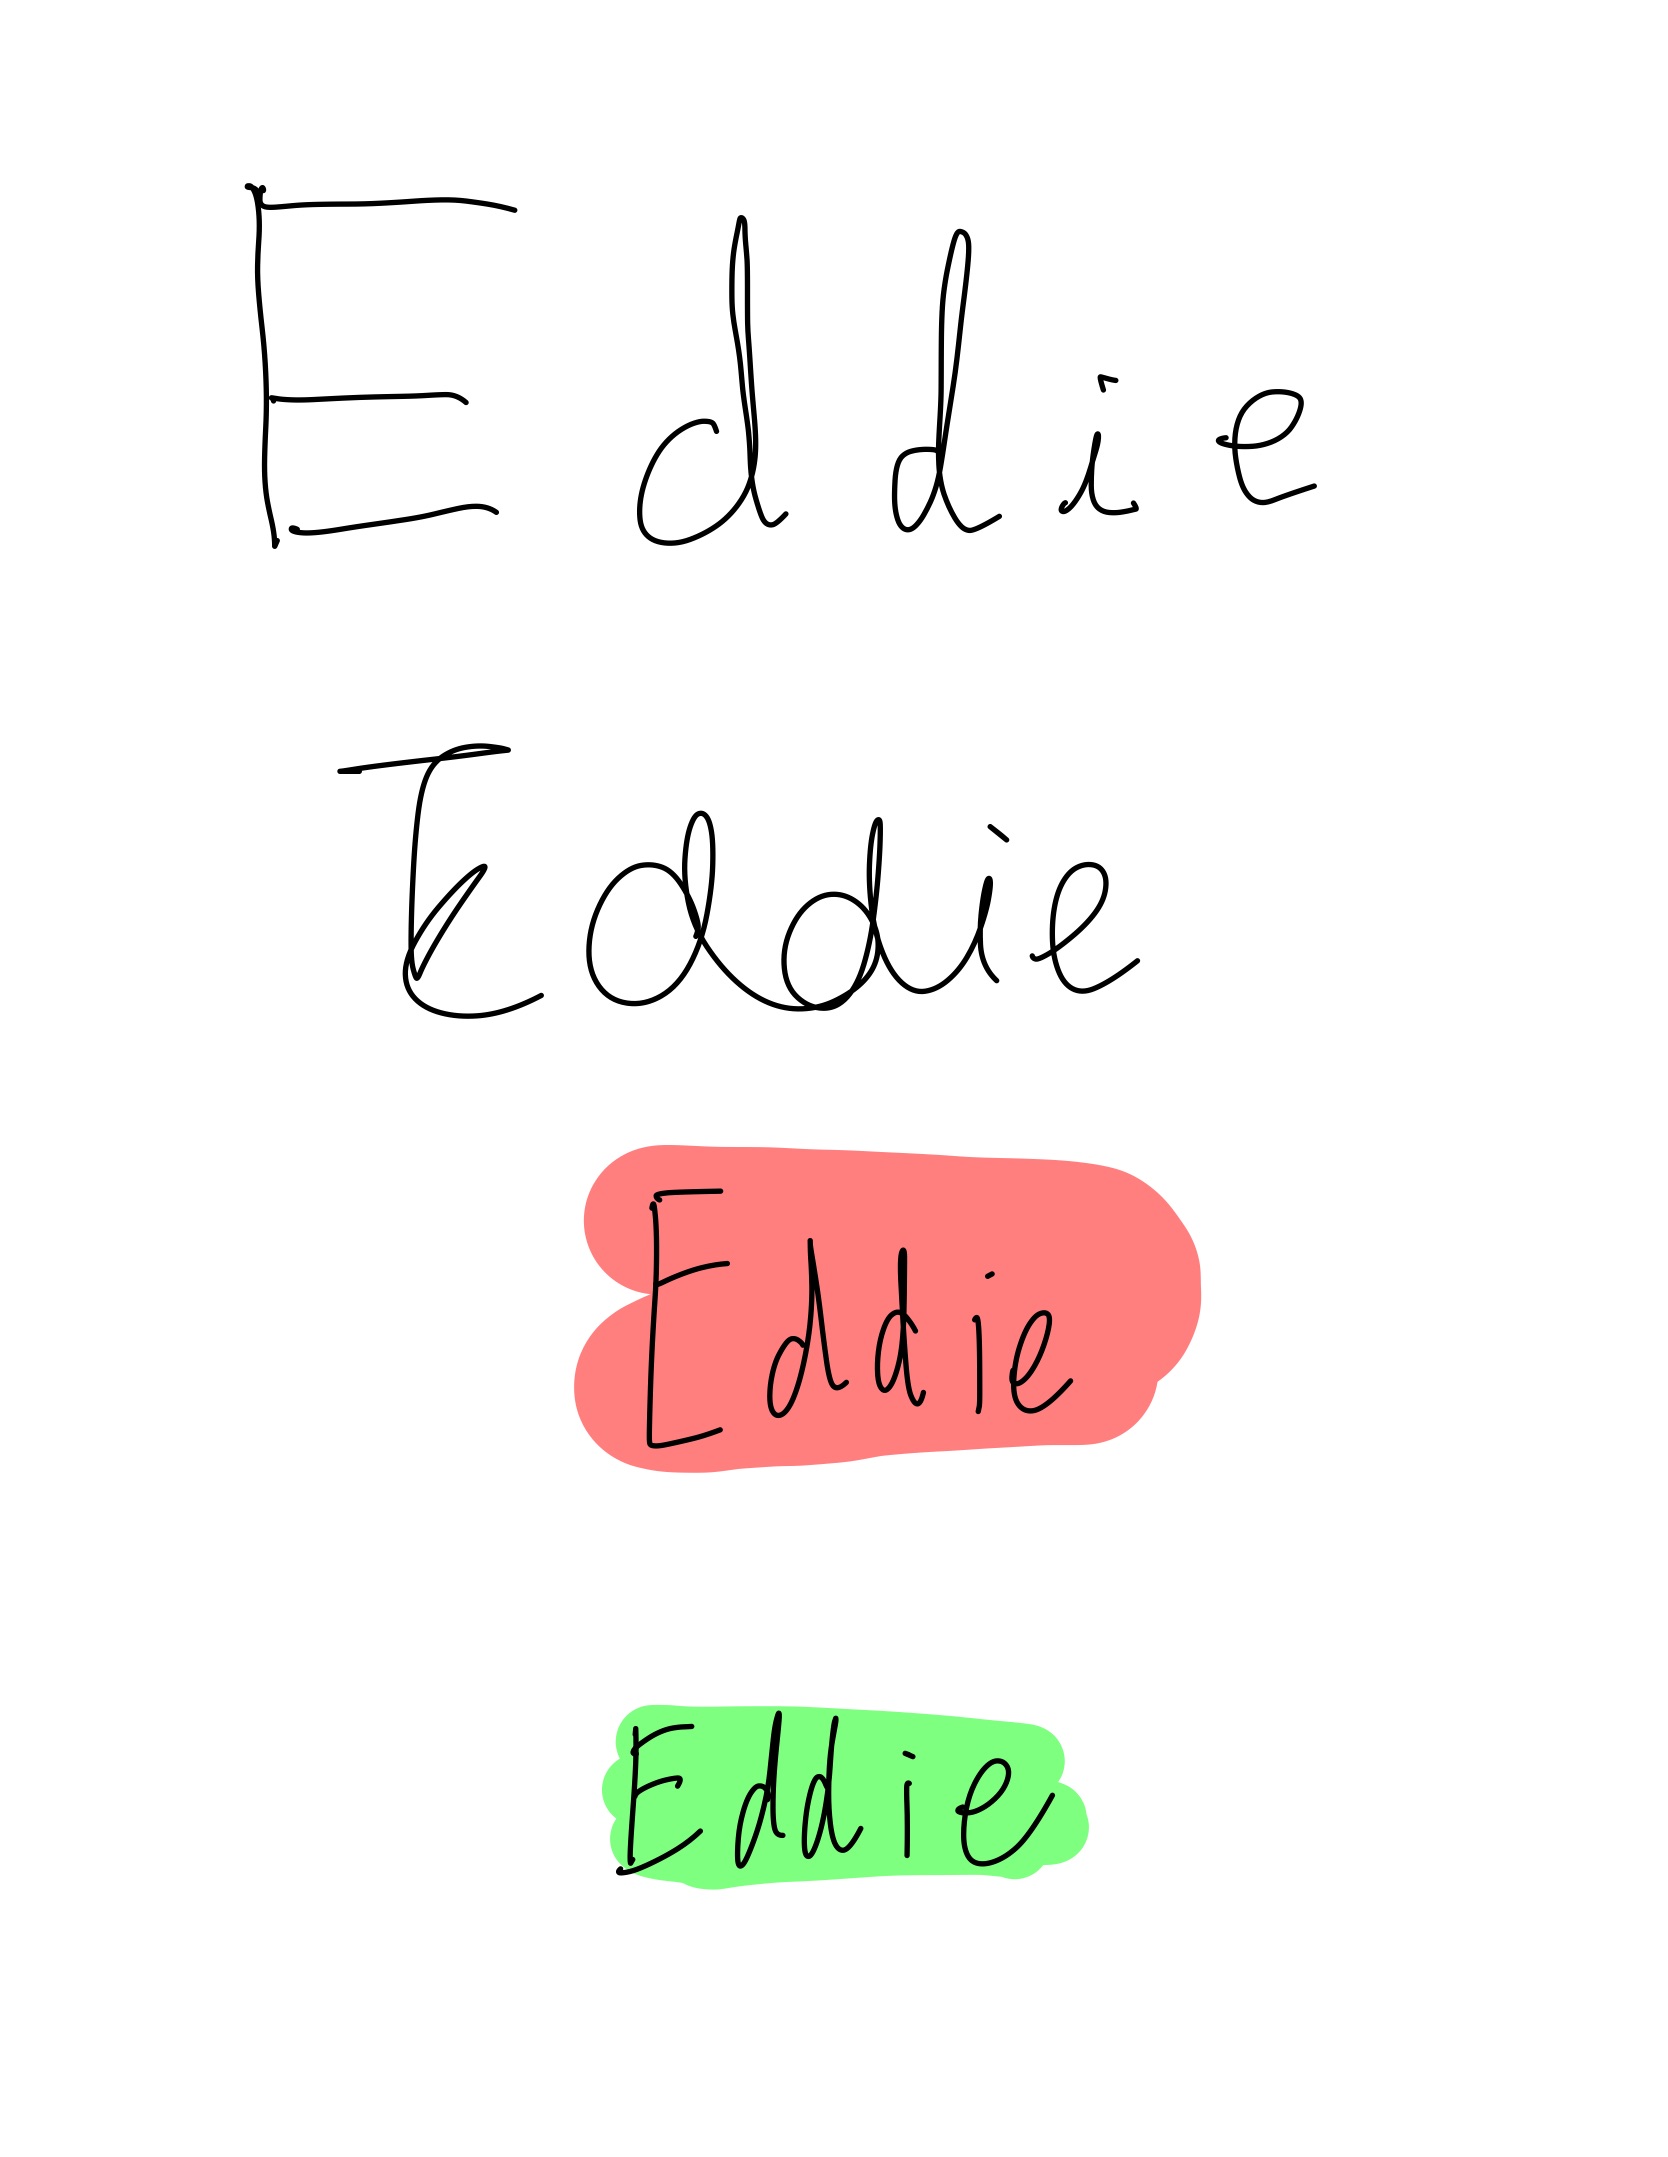 Eddie
Eddie
Eddie
Eddie